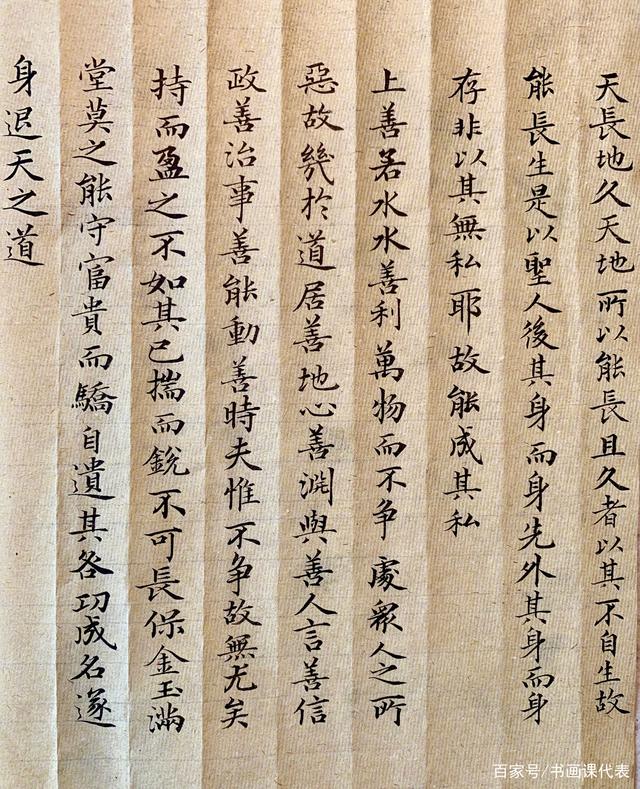 天長地久天地所以能長且久者以其不自生故
能長生是以聖人後其身而身先外其身而身
存非以其無私耶故能成其私
上善若水水善利萬物而不争處衆人之所
惡故幾於道居善地心善淵與善人言善信
政善治事善能動善時夫惟不争故無尤矣
持而盈之不如其已揣而銳不可長保金玉滿
堂莫之能守富貴而驕自遺其咎功成名遂
身退天之道
百家号/书画课代表